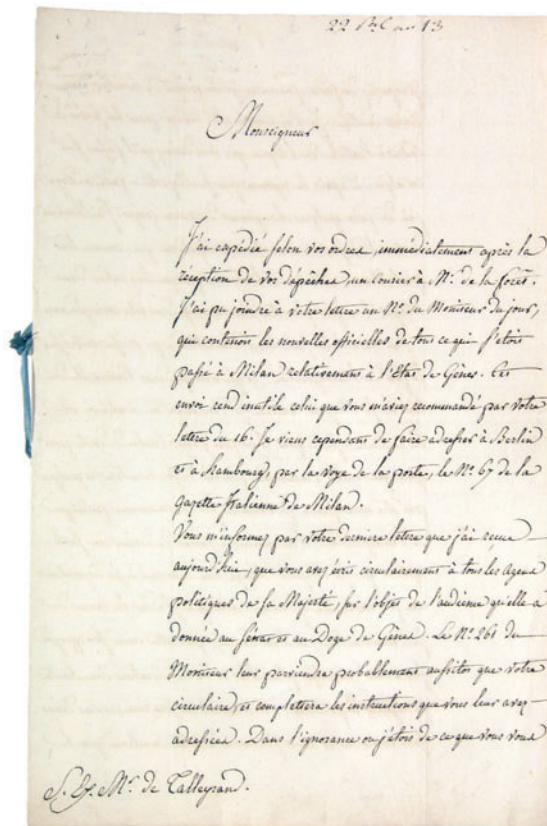 22 P.al an 13
Monseigneur
J'ai expédié selon vos ordres, immédiatement après la
réception de vos dépêches, un courier à Mr. de la forêt.
J'ai pu joindre à votre lettre un No. du Moniteur du jour,
qui contenoit les nouvelles officielles de tout ce qui s'étoit
passé à Milan relativement à l'Etat de Gènes. Cet
envoi rend inutile celui que vous m'aviez recommandé par votre
lettre du 16. Je viens cependant de faire adresser à Berlin
et à Hambourg, par la voye de la poste, le No. 67 de la
gazette Italienne de Milan.
Vous m'informez par votre derniere lettre que j'ai reçue
aujourd'hui, que vous avez écrit circulairement à tous les Agens
politiques de sa Majesté, sur l'objet de l'audience qu'elle a
donnée au sénat et au Doge de Gènes. Le No. 261 du
Moniteur leur parviendra probablement aussitot que votre
circulaire, et complettera les instructions que vous leur avez
adressées. Dans l'ignorance ou j'étois de ce que vous vous
S. Ex. Mr. de Talleyrand.